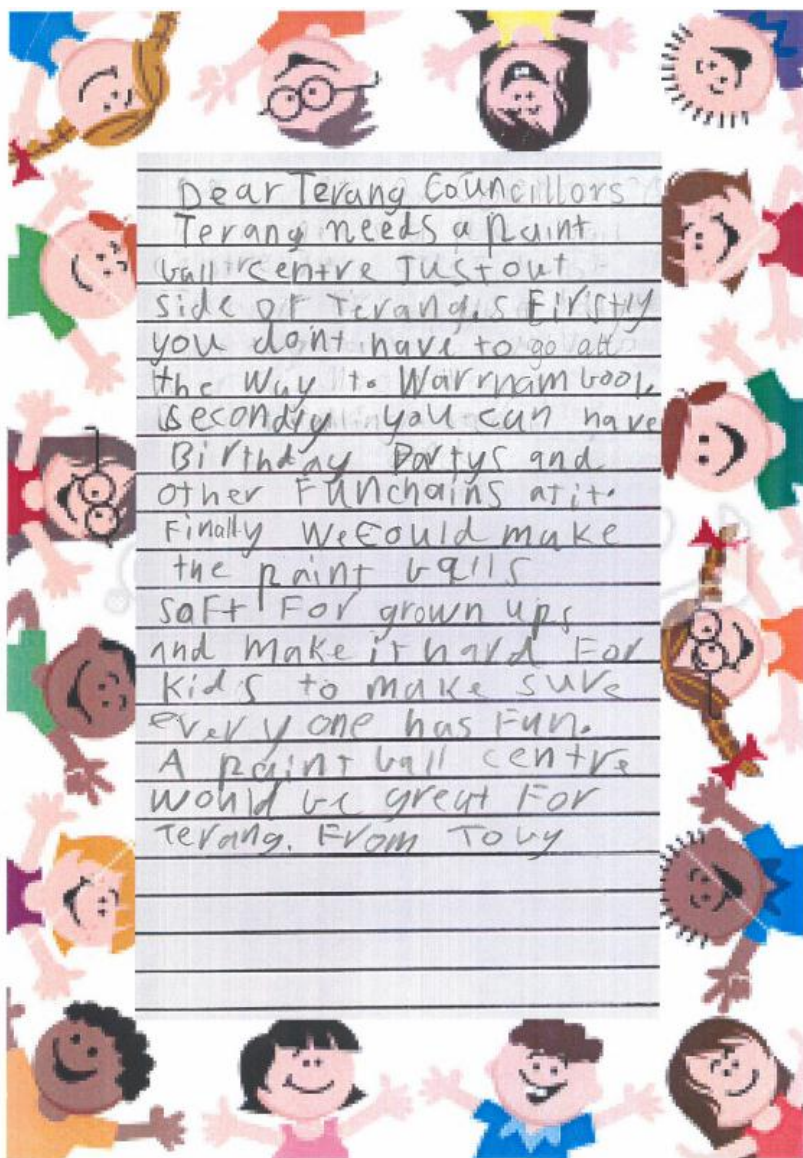 Dear Terang Councillors
Terang needs a paint
ball centre Just out
side of Terang. Firstly
you dont have to go all
the Way to Warrnambool,
secondly you can have
Birthday Partys and
other Funchains at it.
Finally We Could make
the paint balls
soft For grown ups
and make it hard For
Kids to make sure
every one has Fun.
A paint ball centre
would be great For
Terang. From Toby